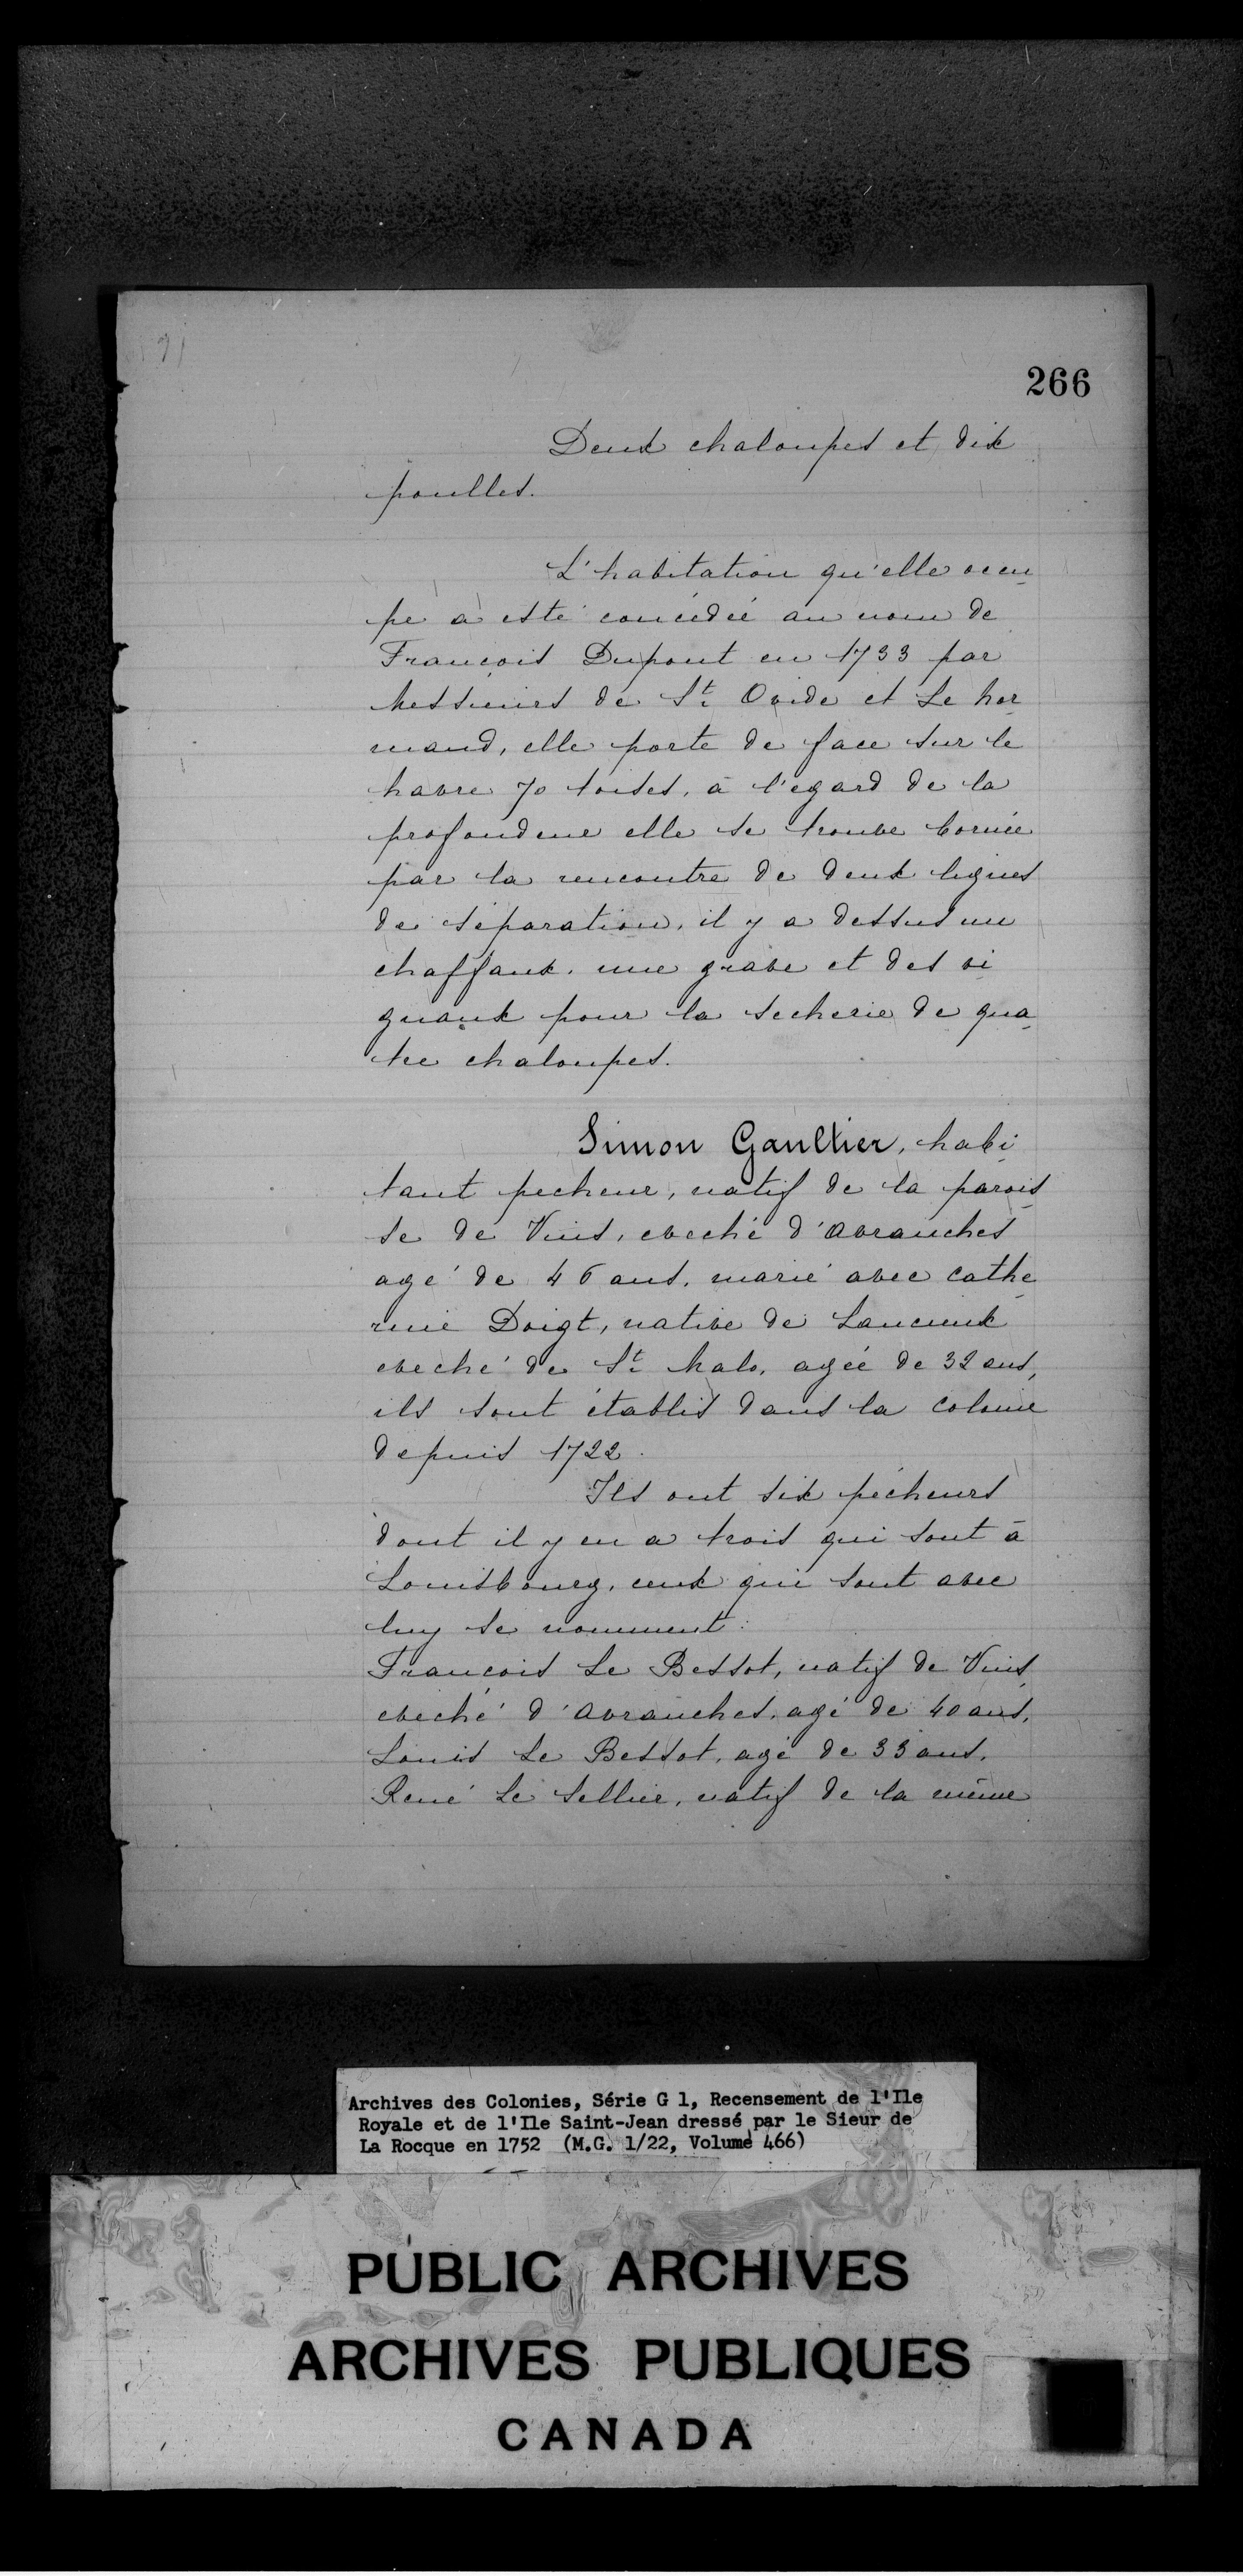 266
Deux chaloupes et dix
poulles.
L'habitation qu'elle occu
pe a esté concédée au nom de
François Dupont en 1733 par
Messieurs de St. Ovide et Le Nor
mand, elle porte de face sur le
havre 70 toises, à l'egard de la
profondeur elle se trouve bornée
par la rencontre de deux lignes
de séparation, il y a dessus un
chaffaux, une grave et des vi
gnaux pour la secherie de qua
tre chaloupes.
Simon Gaultier, habi
tant pecheur, natif de la parois
se de Vins, eveché d'Avranches
agé de 46 ans, marié avec Cathe
rine Doigt, native de Lancieux
eveché de St. Malo, agée de 32 ans,
ils sont établis dans la colonie
depuis 1722.
Ils ont six pécheurs
dont il y en a trois qui sont à
Louisbourg, ceux qui sont avec
luy se nomment:
François Le Bessot, natif de Vins,
eveché d'Avranches, agé de 40 ans,
Louis Le Bessot, agé de 33 ans,
René Le Sellier, natif de la même
Archives des Colonies, Série G 1, Recensement de l'Ile
Royale et de l'Ile Saint-Jean dressé par le Sieur de
La Rocque en 1752 (M.G. 1/22, Volume 466)
PUBLIC ARCHIVES
ARCHIVES PUBLIQUES
CANADA